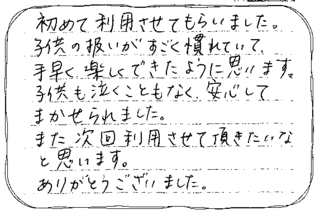 初めて利用させてもらいました。
子供の扱いがすごく慣れていて、
手早く楽しくできたように思います。
子供も泣くこともなく、安心して
まかせられました。
また次回利用させて頂きたいな
と思います。
ありがとうございました。